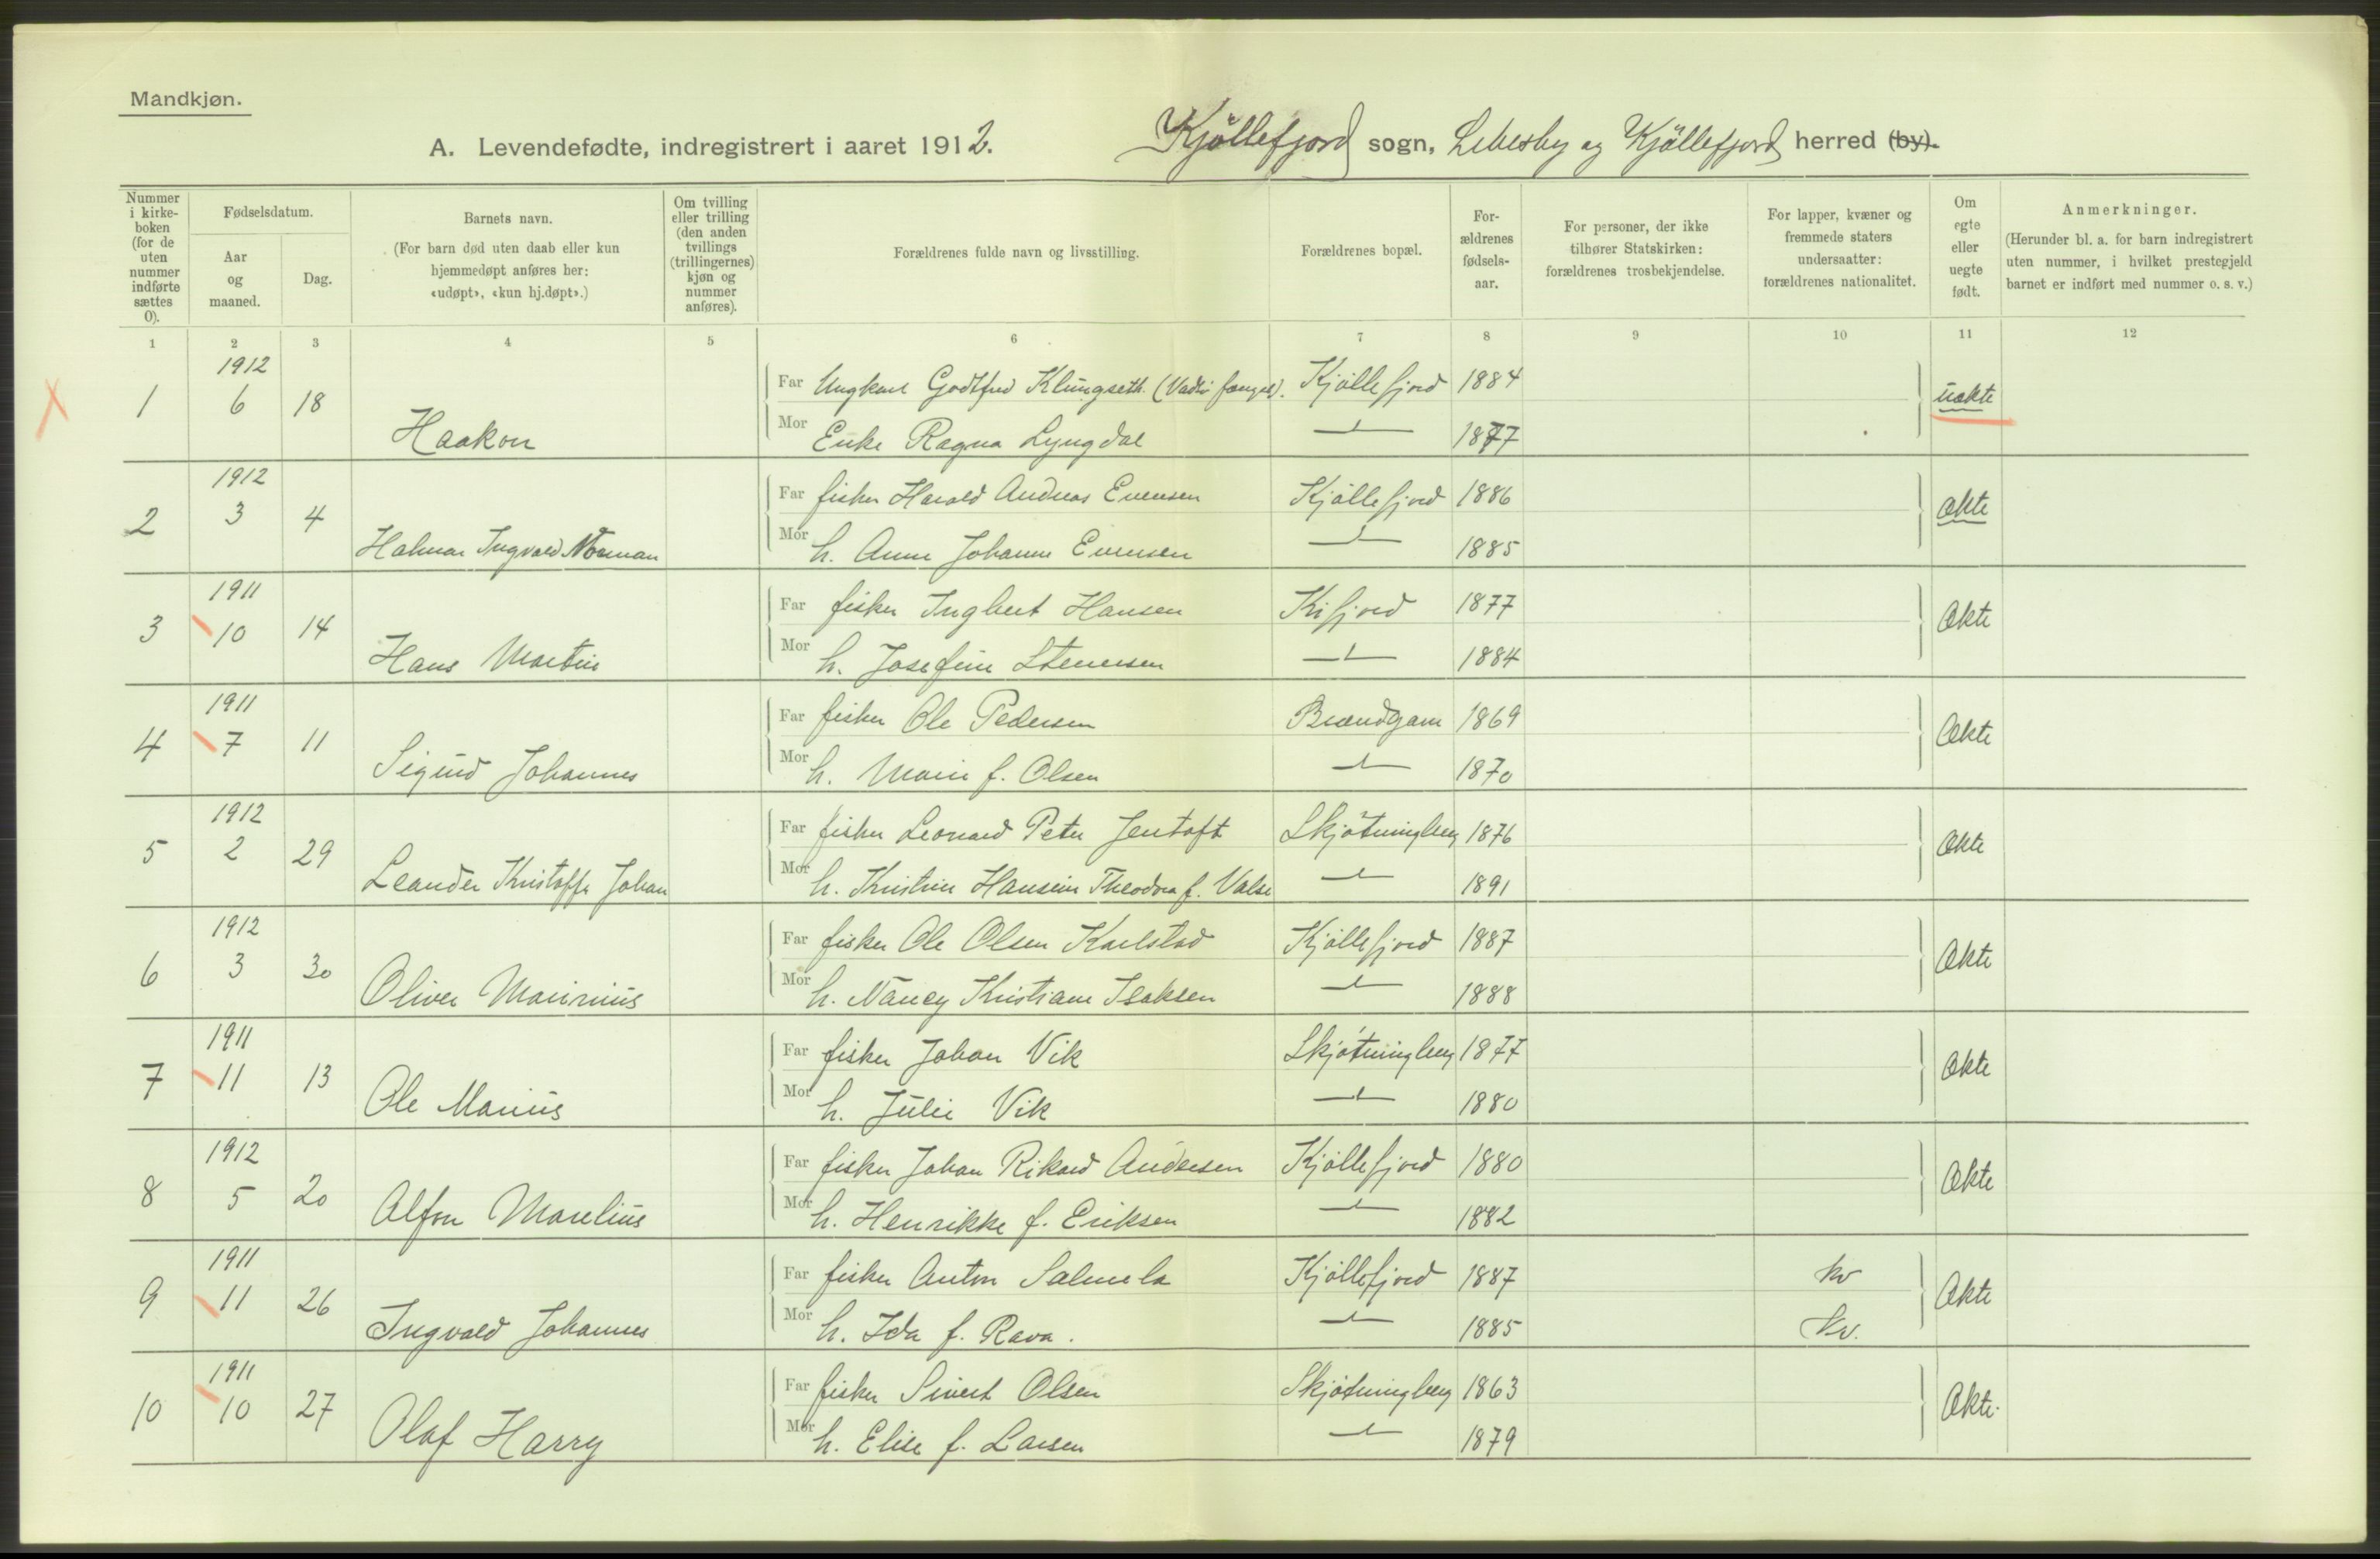 Mandkjøn.
A. Levendefødte, indregistrert i aaret 1912. Kjöllefjord sogn, Lebesby og Kjöllefjord herred (by).
Nummer i kirkeboken (for de uten nummer indførte sættes 0).
Fødselsdatum.
Aar og maaned.
Dag.
Barnets navn.
(For barn død uten daab eller kun hjemmedøpt anføres her: «udøpt», «kun hj.døpt».)
Om tvilling eller trilling (den anden tvillings (trillingernes) kjøn og nummer anføres).
Forældrenes fulde navn og livsstilling.
Forældrenes bopæl.
Forældrenes fødselsaar.
For personer, der ikke tilhører Statskirken: forældrenes trosbekjendelse.
For lapper, kvæner og fremmede staters undersaatter: forældrenes nationalitet.
Om egte eller uegte født.
Anmerkninger.
(Herunder bl. a. for barn indregistrert uten nummer, i hvilket prestegjeld barnet er indført med nummer o. s. v.)
1 2 3 4 5 6 7 8 9 10 11 12
1912
Far Ungkarl Godtfred Klungseth. (Vadsö fængsel). Kjöllefjord 1884
1 6 18 Haakon uækte
Mor Enke Ragna Lyngdal 1877
1912
Far fisker Harald Andreas Evensen Kjöllefjord 1886
2 3 4 Halmar Ingvald Norman ækte
Mor h. Anne Johanne Evensen 1885
1911
Far fisker Ingbert Hansen Kifjord 1877
3 10 14 Hans Martin Ækte
Mor h. Josefine Stenersen 1884
1911
Far fisker Ole Pedersen Brændgam 1869
4 7 11 Sigurd Johannes Ækte
Mor h. Marie f. Olsen 1870
1912
Far fisker Leonard Peter Jentoft Skjötningberg 1876
5 2 29 Leander Kristoffer Johan Ækte
Mor h. Kristine Hansine Theodora f. Valse 1891
1912
Far fisker Ole Olsen Karlstad Kjöllefjord 1887
6 3 30 Oliver Marinius Ækte
Mor h. Nancy Kristiane Isaksen 1888
1911
Far fisker Johan Vik Skjötningberg 1877
7 11 13 Ole Marius Ækte
Mor h. Julie Vik 1880
1912
Far fisker Johan Rikard Andersen Kjöllefjord 1880
8 5 20 Alfon Marelius Ækte
Mor h. Henrikke f. Eriksen 1882
1911
Far fisker Anton Salmela Kjöllefjord 1887 kv
9 11 26 Ingvald Johannes Ækte
Mor h. Ida f. Rava. 1885 kv.
1911
Far fisker Sivert Olsen Skjötningberg 1863
10 10 27 Olaf Harry Ækte.
Mor h. Elise f. Larsen 1879